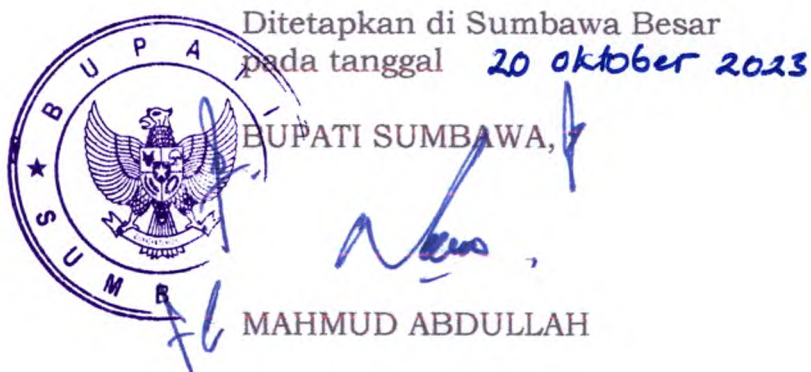 Ditetapkan di Sumbawa Besar
pada tanggal 20 Oktober 2023
BUPATI SUMBAWA,
MAHMUD ABDULLAH
BUPATI
★ SUMB